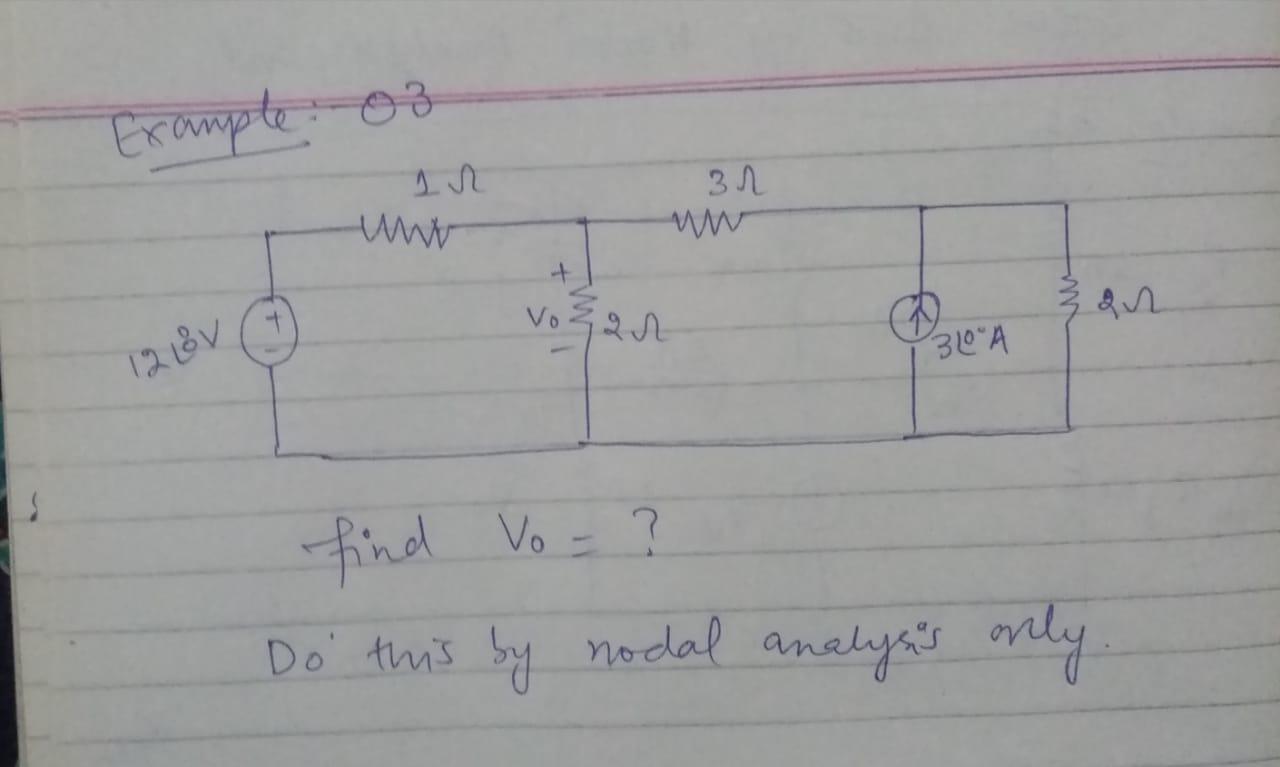 Example:- 03
1Ω 3Ω
+
Vo 2Ω
-
+
-
12∠0°V
3∠0°A
2Ω
find Vo = ?
Do this by nodal analysis only.